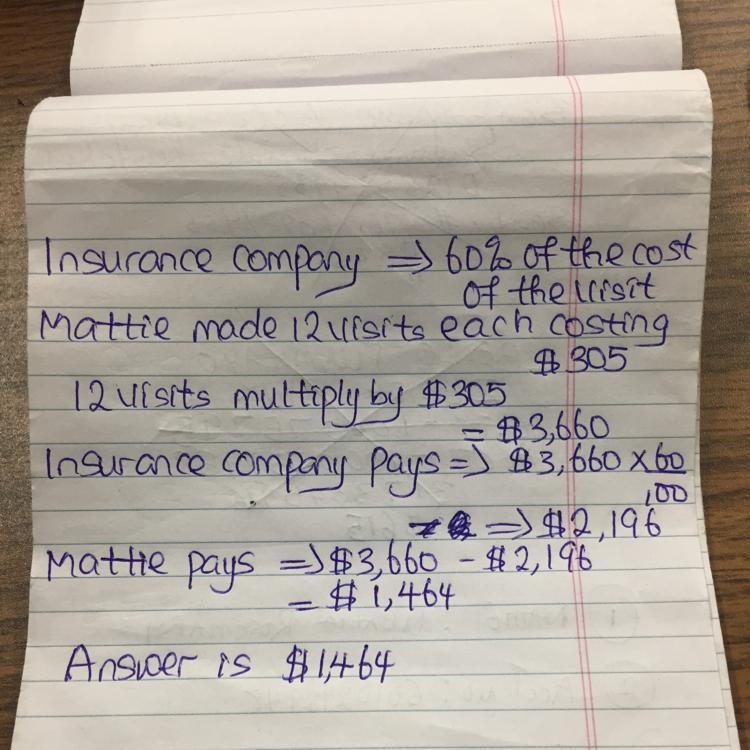 Insurance company => 60% of the cost
of the visit
Mattie made 12 visits each costing
$305
12 visits multiply by $305
= $3,660
Insurance company pays => $3,660 x 60
100
=> $2,196
Mattie pays => $3,660 - $2,196
= $1,464
Answer is $1,464